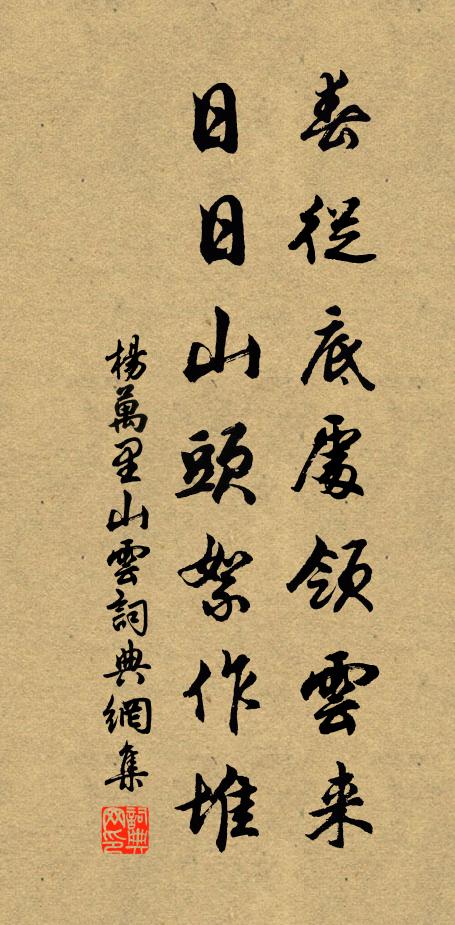 春從底處領雲来
日日山頭絮作堆
楊萬里山雲詞典網集
詞典网印